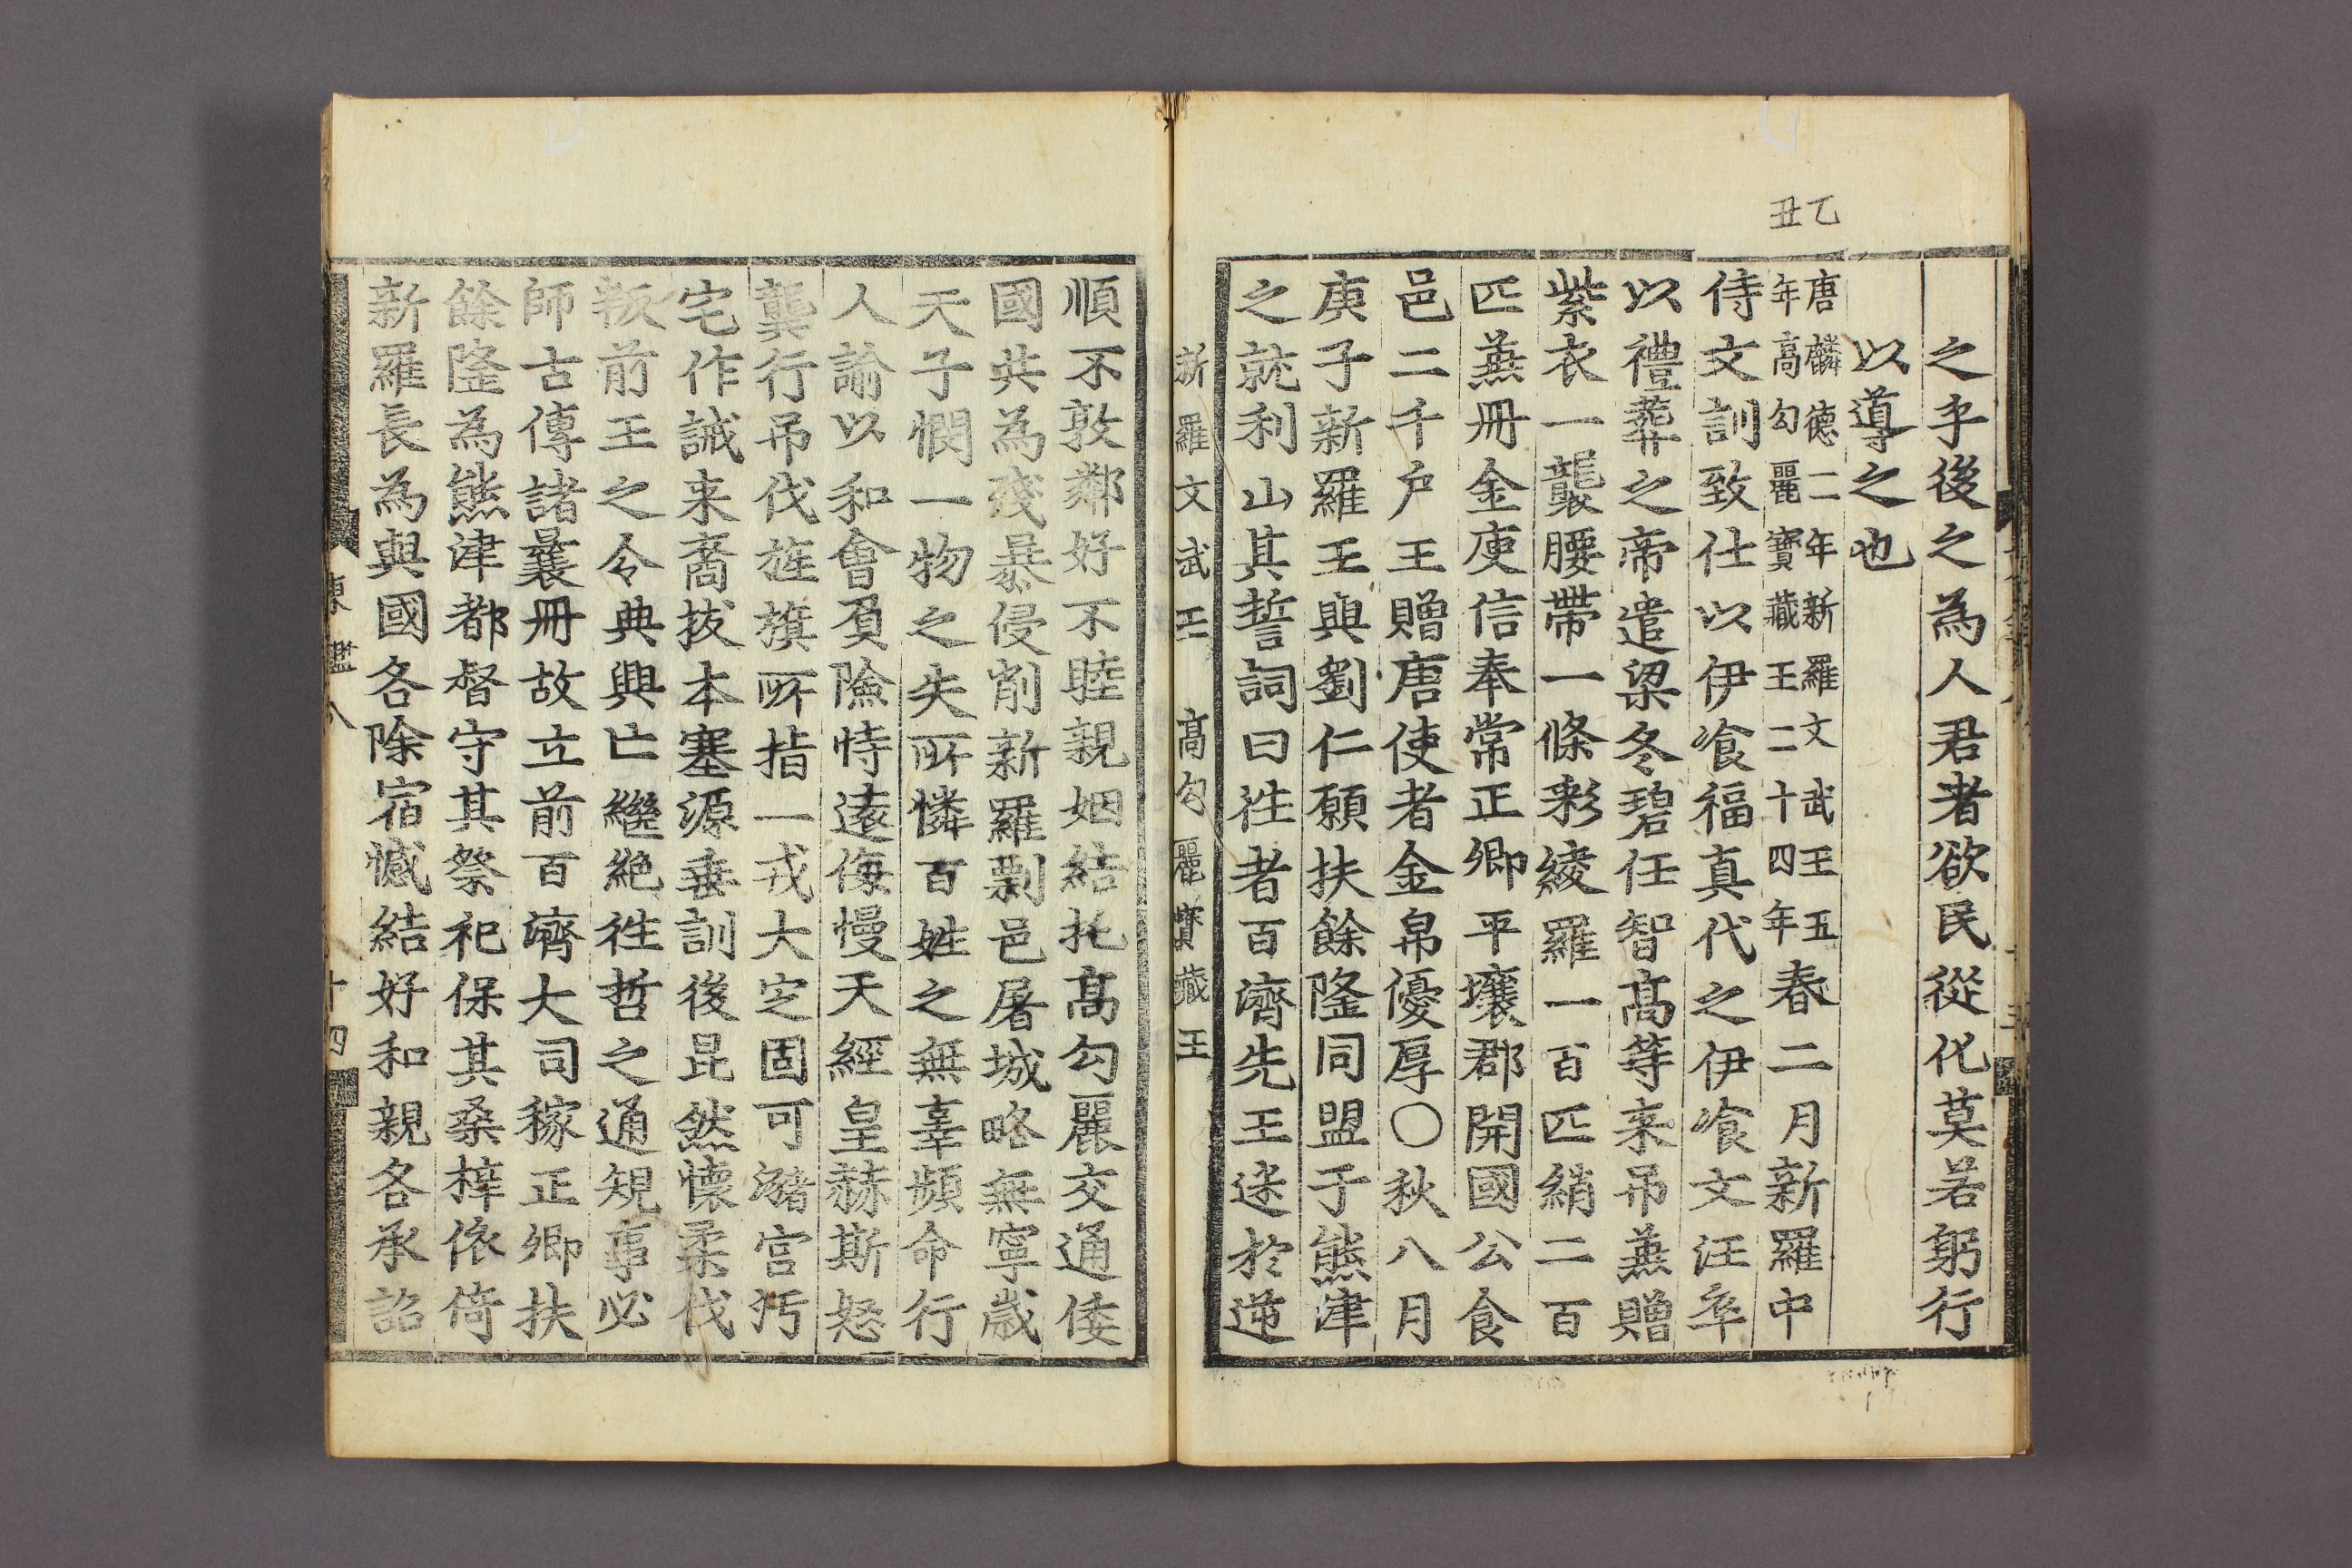 乙丑
之乎後之為人君者欲民從化莫若躬行
以導之也
唐麟德二年新羅文武王五
年高勾麗寶藏王二十四年
春二月新羅中
侍文訓致仕以伊飡福真代之伊飡文汪卒
以禮葬之帝遣梁冬碧任智高等来吊兼贈
紫衣一襲腰帶一條彩綾羅一百匹綃二百
匹燕冊金庾信奉常正卿平壤郡開國公食
邑二千户王贈唐使者金帛優厚〇秋八月
庚子新羅王與劉仁願扶餘隆同盟于熊津
之就利山其誓詞曰徃者百濟先王迷於逆
新羅文武王 高勾麗寶藏王
順不敦鄰好不睦親姻結托高勾麗交通倭
國共為殘暴侵削新羅剽邑屠城略無寧歲
天子憫一物之失所憐百姓之無辜頻命行
人諭以和會負險恃遠侮慢天經皇赫斯怒
龔行吊伐旌旗所指一戎大定固可瀦宮汚
宅作誡来裔拔本塞源垂訓後昆然懷柔伐
叛前王之令典興亡繼絶徃哲之通規事必
師古傳諸曩冊故立前百濟大司稼正卿扶
餘隆為熊津都督守其祭祀保其桑梓依倚
新羅長為與國各除宿憾結好和親各承詔
東鑑八
十四